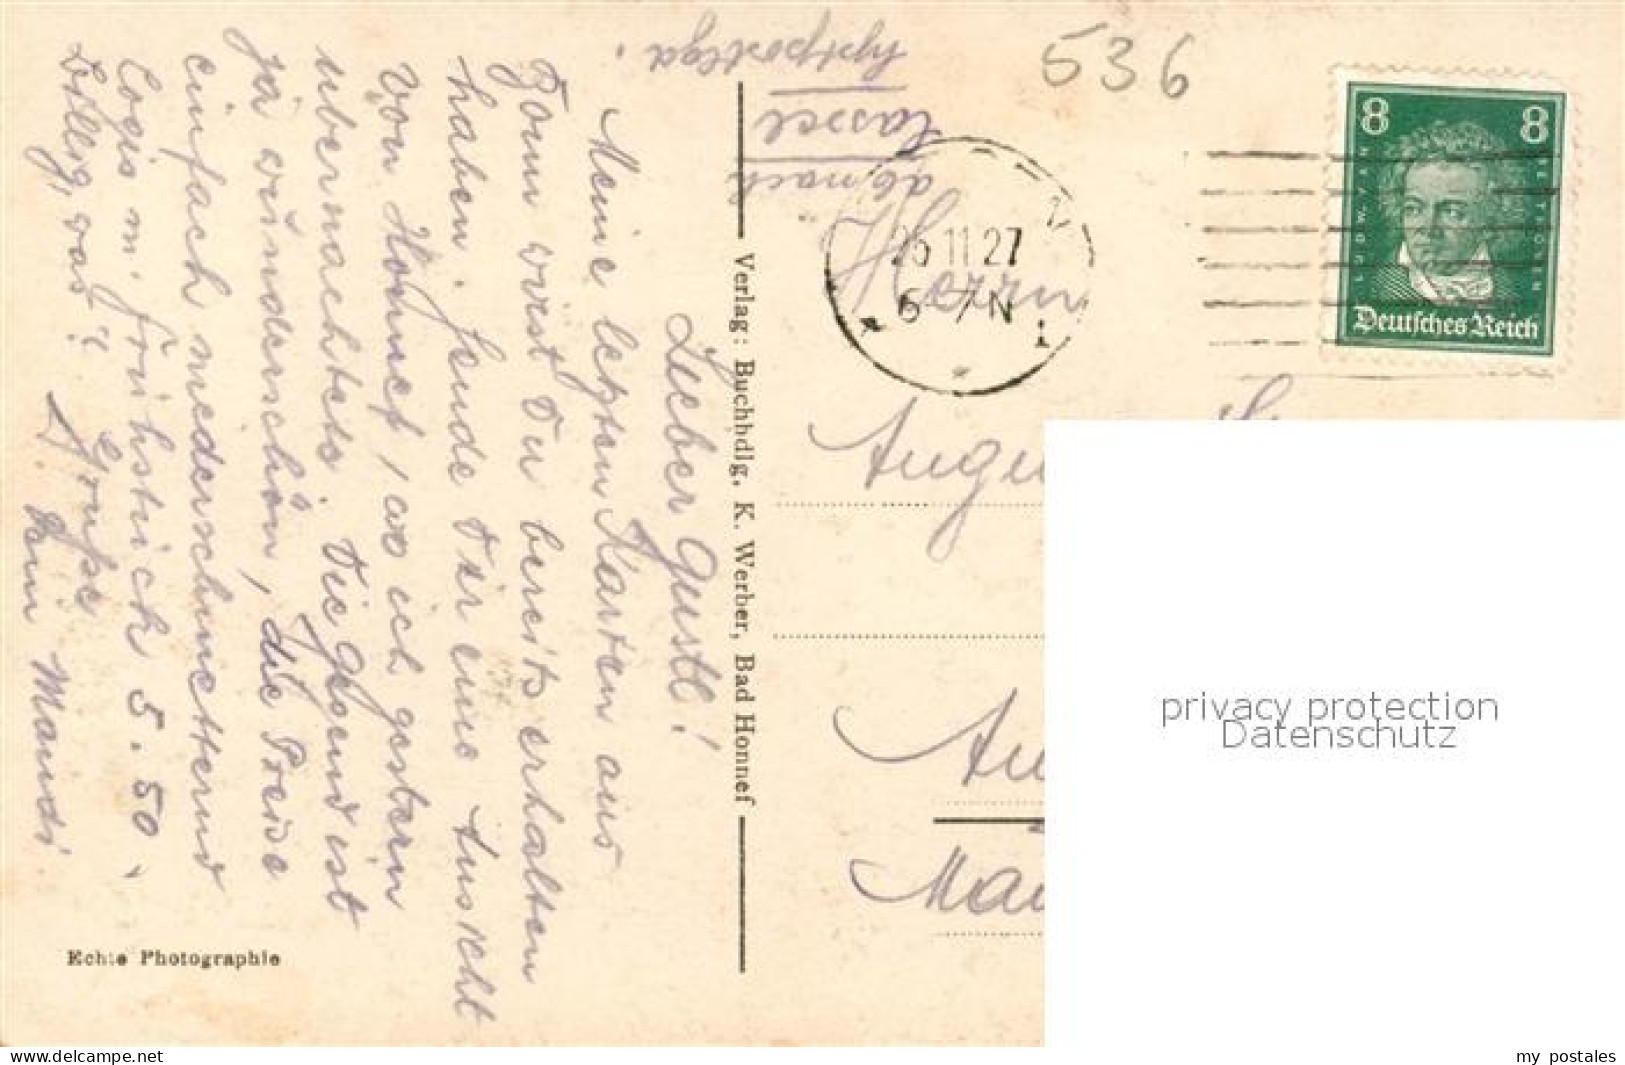 Lieber Gustl!
Meine letzten Karten aus
Bonn wirst Du bereits erhalten
haben. Sende Dir eine Ansicht
von Honnef, wo ich gestern
übernachtete. Die Gegend ist
ja wunderschön, die Preise
einfach niederschmetternd
Logis m. Frühstück 5.50.
billig, was"? Grüße
Dein Mandi
Verlag: Buchhdlg. K. Werber, Bad Honnef
Echte Photographie
ab nach
Cassel
hptpostlga.
536
25 11 27
6-7 N
8 8
LUDW. VAN BEETHOVEN
Deutsches Reich
Herrn
Augu
Au
Mau
privacy protection
Datenschutz
www.delcampe.net
my_postales